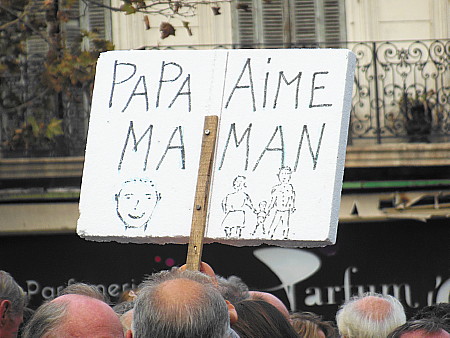 PAPA AIME
MA MAN
Parfumeri
Parfum